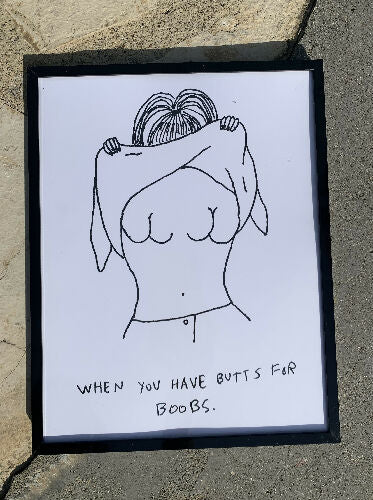 WHEN YOU HAVE BUTTS FOR
BOOBS.